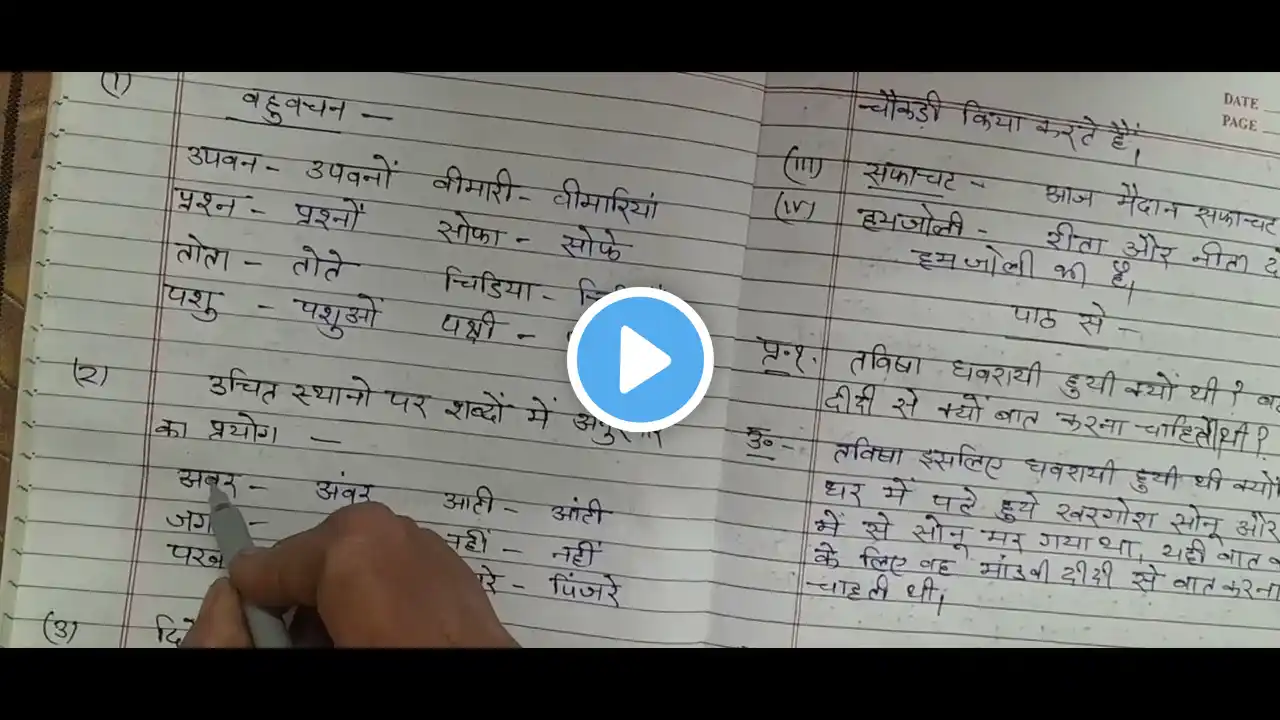 (1)
बहुवचन —
उपवन - उपवनों वीमारी - वीमारियां
प्रश्न - प्रश्नों सोफा - सोफे
तोता - तोते चिडिया -
पशु - पशुओं पक्षी -
(२) उचित स्थानो पर शब्दों में अनुस्वार
का प्रयोग —
अवर - अंवर आटी - आंटी
जग - नहीं - नहीं
- पिंजरे
(3)
DATE
PAGE
चौकड़ी किया करते हैं।
(III) सफाचट - आज मैदान सफाचट
(IV) हमजोली - रीता और नीता
हमजोली भी है।
पाठ से -
प्र.१. तविषा घवरायी हुयी क्यों थी?
दीदी से क्यों बात करना चाहिती थी?
उ०- तविषा इसलिए घवरायी हुयी थी
घर में पले हुये खरगोश सोनू और
में से सोनू मर गया था, यही बात
के लिए वह मांडवी दीदी से वात करना
चाहती थी।